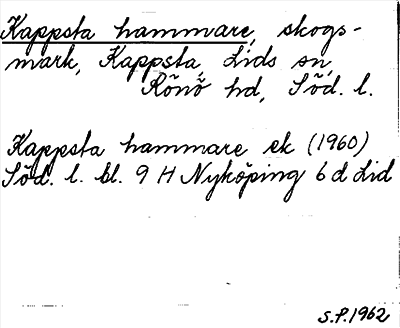 Kappsta hammare, skogs-
mark, Kappsta, Lids sn,
Rönö hd, Söd. l.
Kappsta hammare ek (1960)
Söd. l. bl. 9 H Nyköping 6 d Lid
S.P. 1962